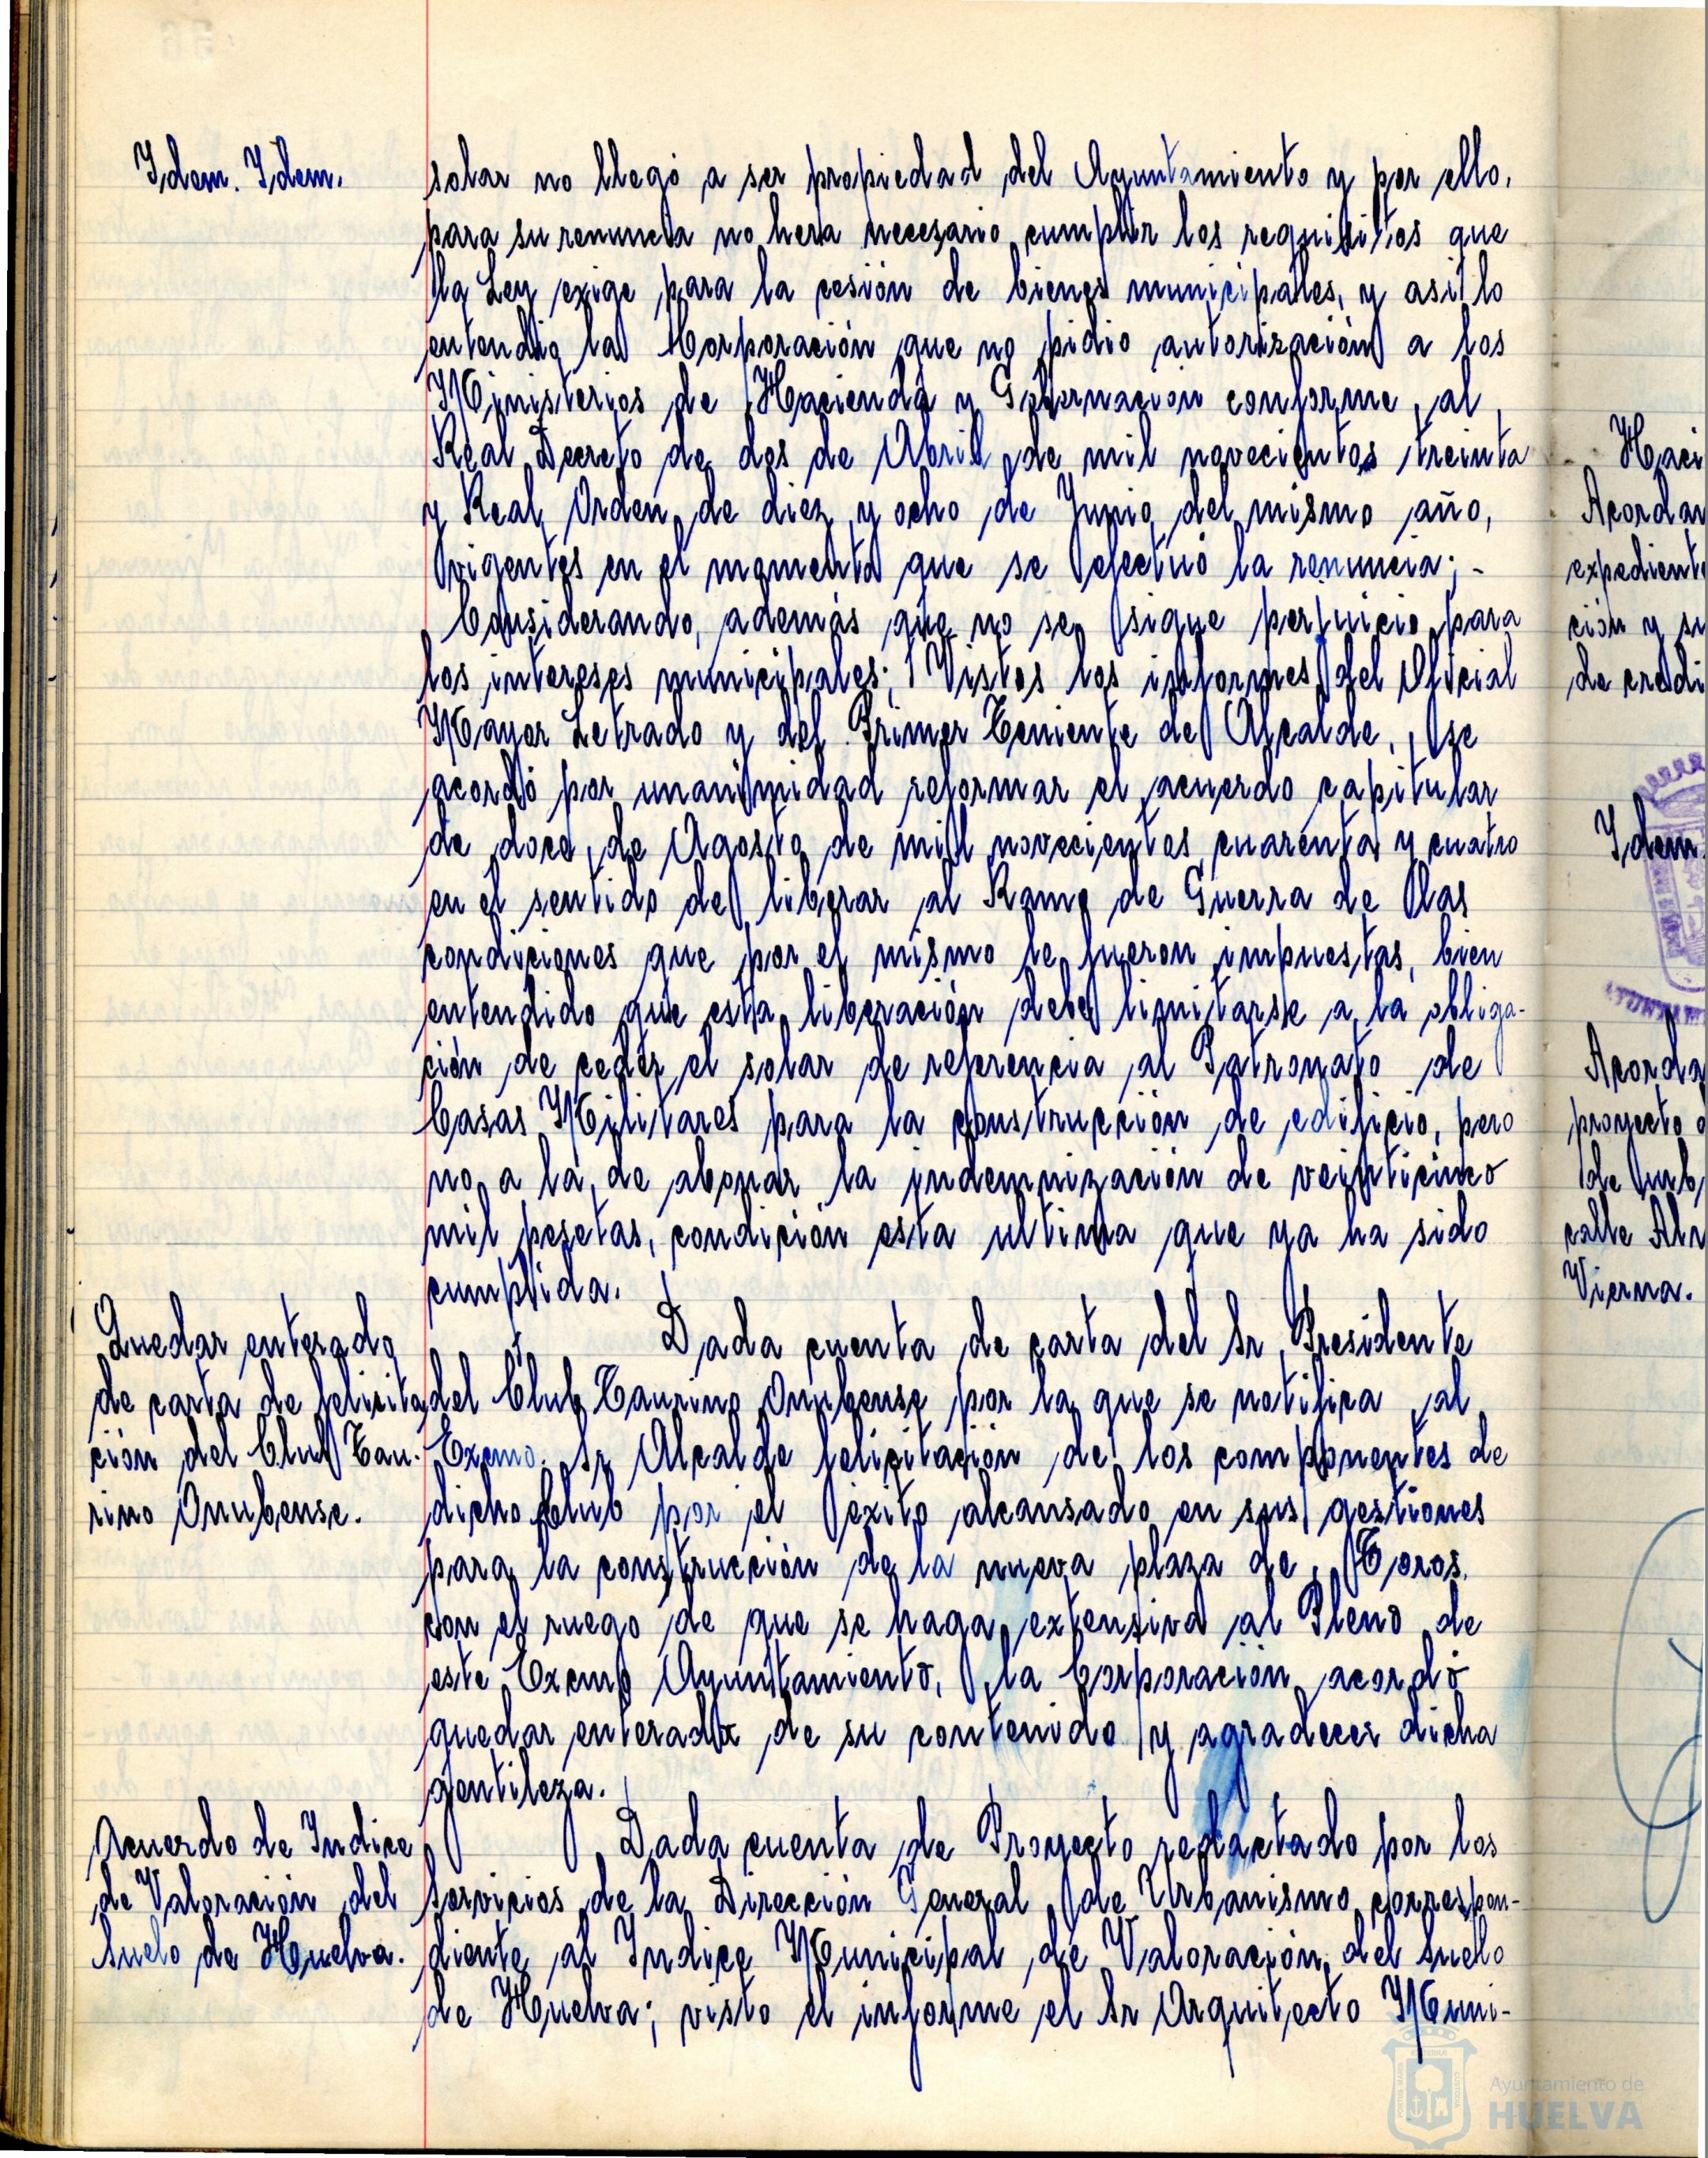 Idem. Idem.
solar no llegó a ser propiedad del Ayuntamiento y por ello,
para su renuncia no hera necesario cumplir los requisitos que
la Ley exige para la cesión de bienes municipales, y asi lo
entendio la Corporación que no pidio autorización a los
Ministerios de Hacienda y Gobernación conforme al
Real Decreto de dos de Abril de mil novecientos treinta
y Real Orden de diez y ocho de Junio del mismo año,
vigentes en el momento que se efectuó la renuncia; -
Considerando, además que no se sigue perjuicio para
los intereses municipales; Vistos los informes del Oficial
Mayor Letrado y del Primer Teniente de Alcalde, se
acordó por unanimidad reformar el acuerdo capitular
de doce de Agosto de mil novecientos cuarenta y cuatro
en el sentido de liberar al Ramo de Guerra de las
condiciones que por el mismo le fueron impuestas, bien
entendido que esta liberación debe limitarse a la obliga-
ción de ceder el solar de referencia al Patronato de
Casas Militares para la construcción de edificio, pero
no a la de abonar la indemnización de veinticinco
mil pesetas, condición esta ultima que ya ha sido
cumplida.
Quedar enterado
de carta de felicita
ción del Club Tau-
rino Onubense.
Dada cuenta de carta del Sr Presidente
del Club Taurino Onubense por la que se notifica al
Excmo. Sr Alcalde felicitación de los componentes de
dicho Club por el éxito alcansado en sus gestiones
para la construcción de la nueva plaza de Toros,
con el ruego de que se haga extensiva al Pleno de
este Excmo Ayuntamiento, la Corporación acordó
quedar enterada de su contenido y agradecer dicha
gentileza.
Acuerdo de Indice
de Valoración del
Suelo de Huelva.
Dada cuenta de Proyecto redactado por los
servicios de la Dirección General de Urbanismo correspon-
diente al Indice Municipal de Valoración del suelo
de Huelva; visto el informe el Sr Arquitecto Muni-
Haci
Acordar
expedient
ción y su
de credi
Idem
Acorda
proyecto
de Urb
calle
Vierna.
Ayuntamiento de
HUELVA